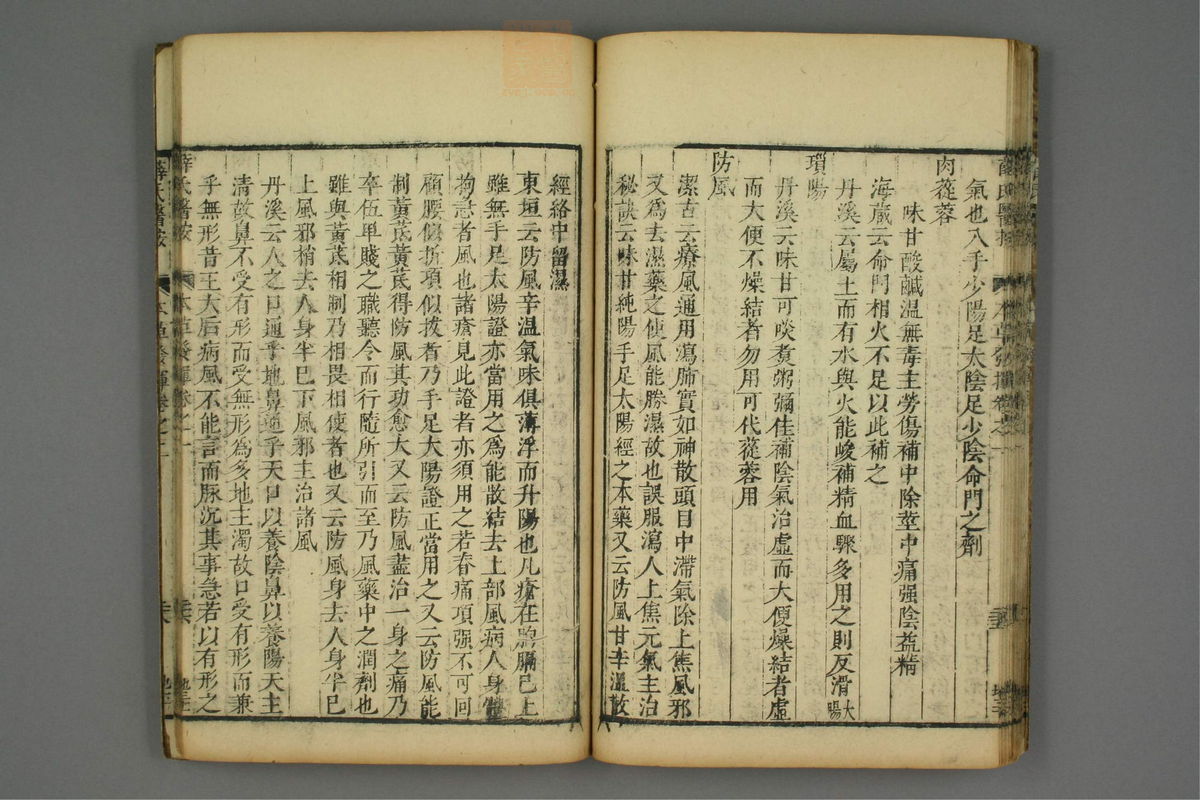 氣也入手少陽足太陰足少陰命門之劑
肉蓯蓉
味甘酸鹹溫無毒主勞傷補中除莖中痛强陰益精
海藏云命門相火不足以此補之
丹溪云屬土而有水與火能峻補精血驟多用之則反滑大腸
瑣陽
丹溪云味甘可啖煮粥彌佳補陰氣治虛而大便燥結者虛
而大便不燥結者勿用可代蓯蓉用
防風
潔古云療風通用瀉肺實如神散頭目中滯氣除上焦風邪
又爲去濕藥之使風能勝濕故也誤服瀉人上焦元氣主治
秘訣云味甘純陽手足太陽經之本藥又云防風甘辛溫散
經絡中留濕
東垣云防風辛溫氣味俱薄浮而升陽也凡瘡在胸膈已上
雖無手足太陽證亦當用之爲能散結去上部風病人身體
拘急者風也諸瘡見此證者亦須用之若春痛項强不可回
顧腰似折項似拔者乃手足太陽證正當用之又云防風能
制黃芪黃芪得防風其功愈大又云防風盡治一身之痛乃
卒伍卑賤之職聽令而行隨所引而至乃風藥中之潤劑也
雖與黃芪相制乃相畏相使者也又云防風身去人身半已
上風邪梢去人身半已下風邪主治諸風
丹溪云人之口通乎地鼻通乎天口以養陰鼻以養陽天主
清故鼻不受有形而受無形爲多地主濁故口受有形而兼
乎無形昔王大后病風不能言而脉沉其事急若以有形之
薛氏醫按 本草發揮卷之二 地三